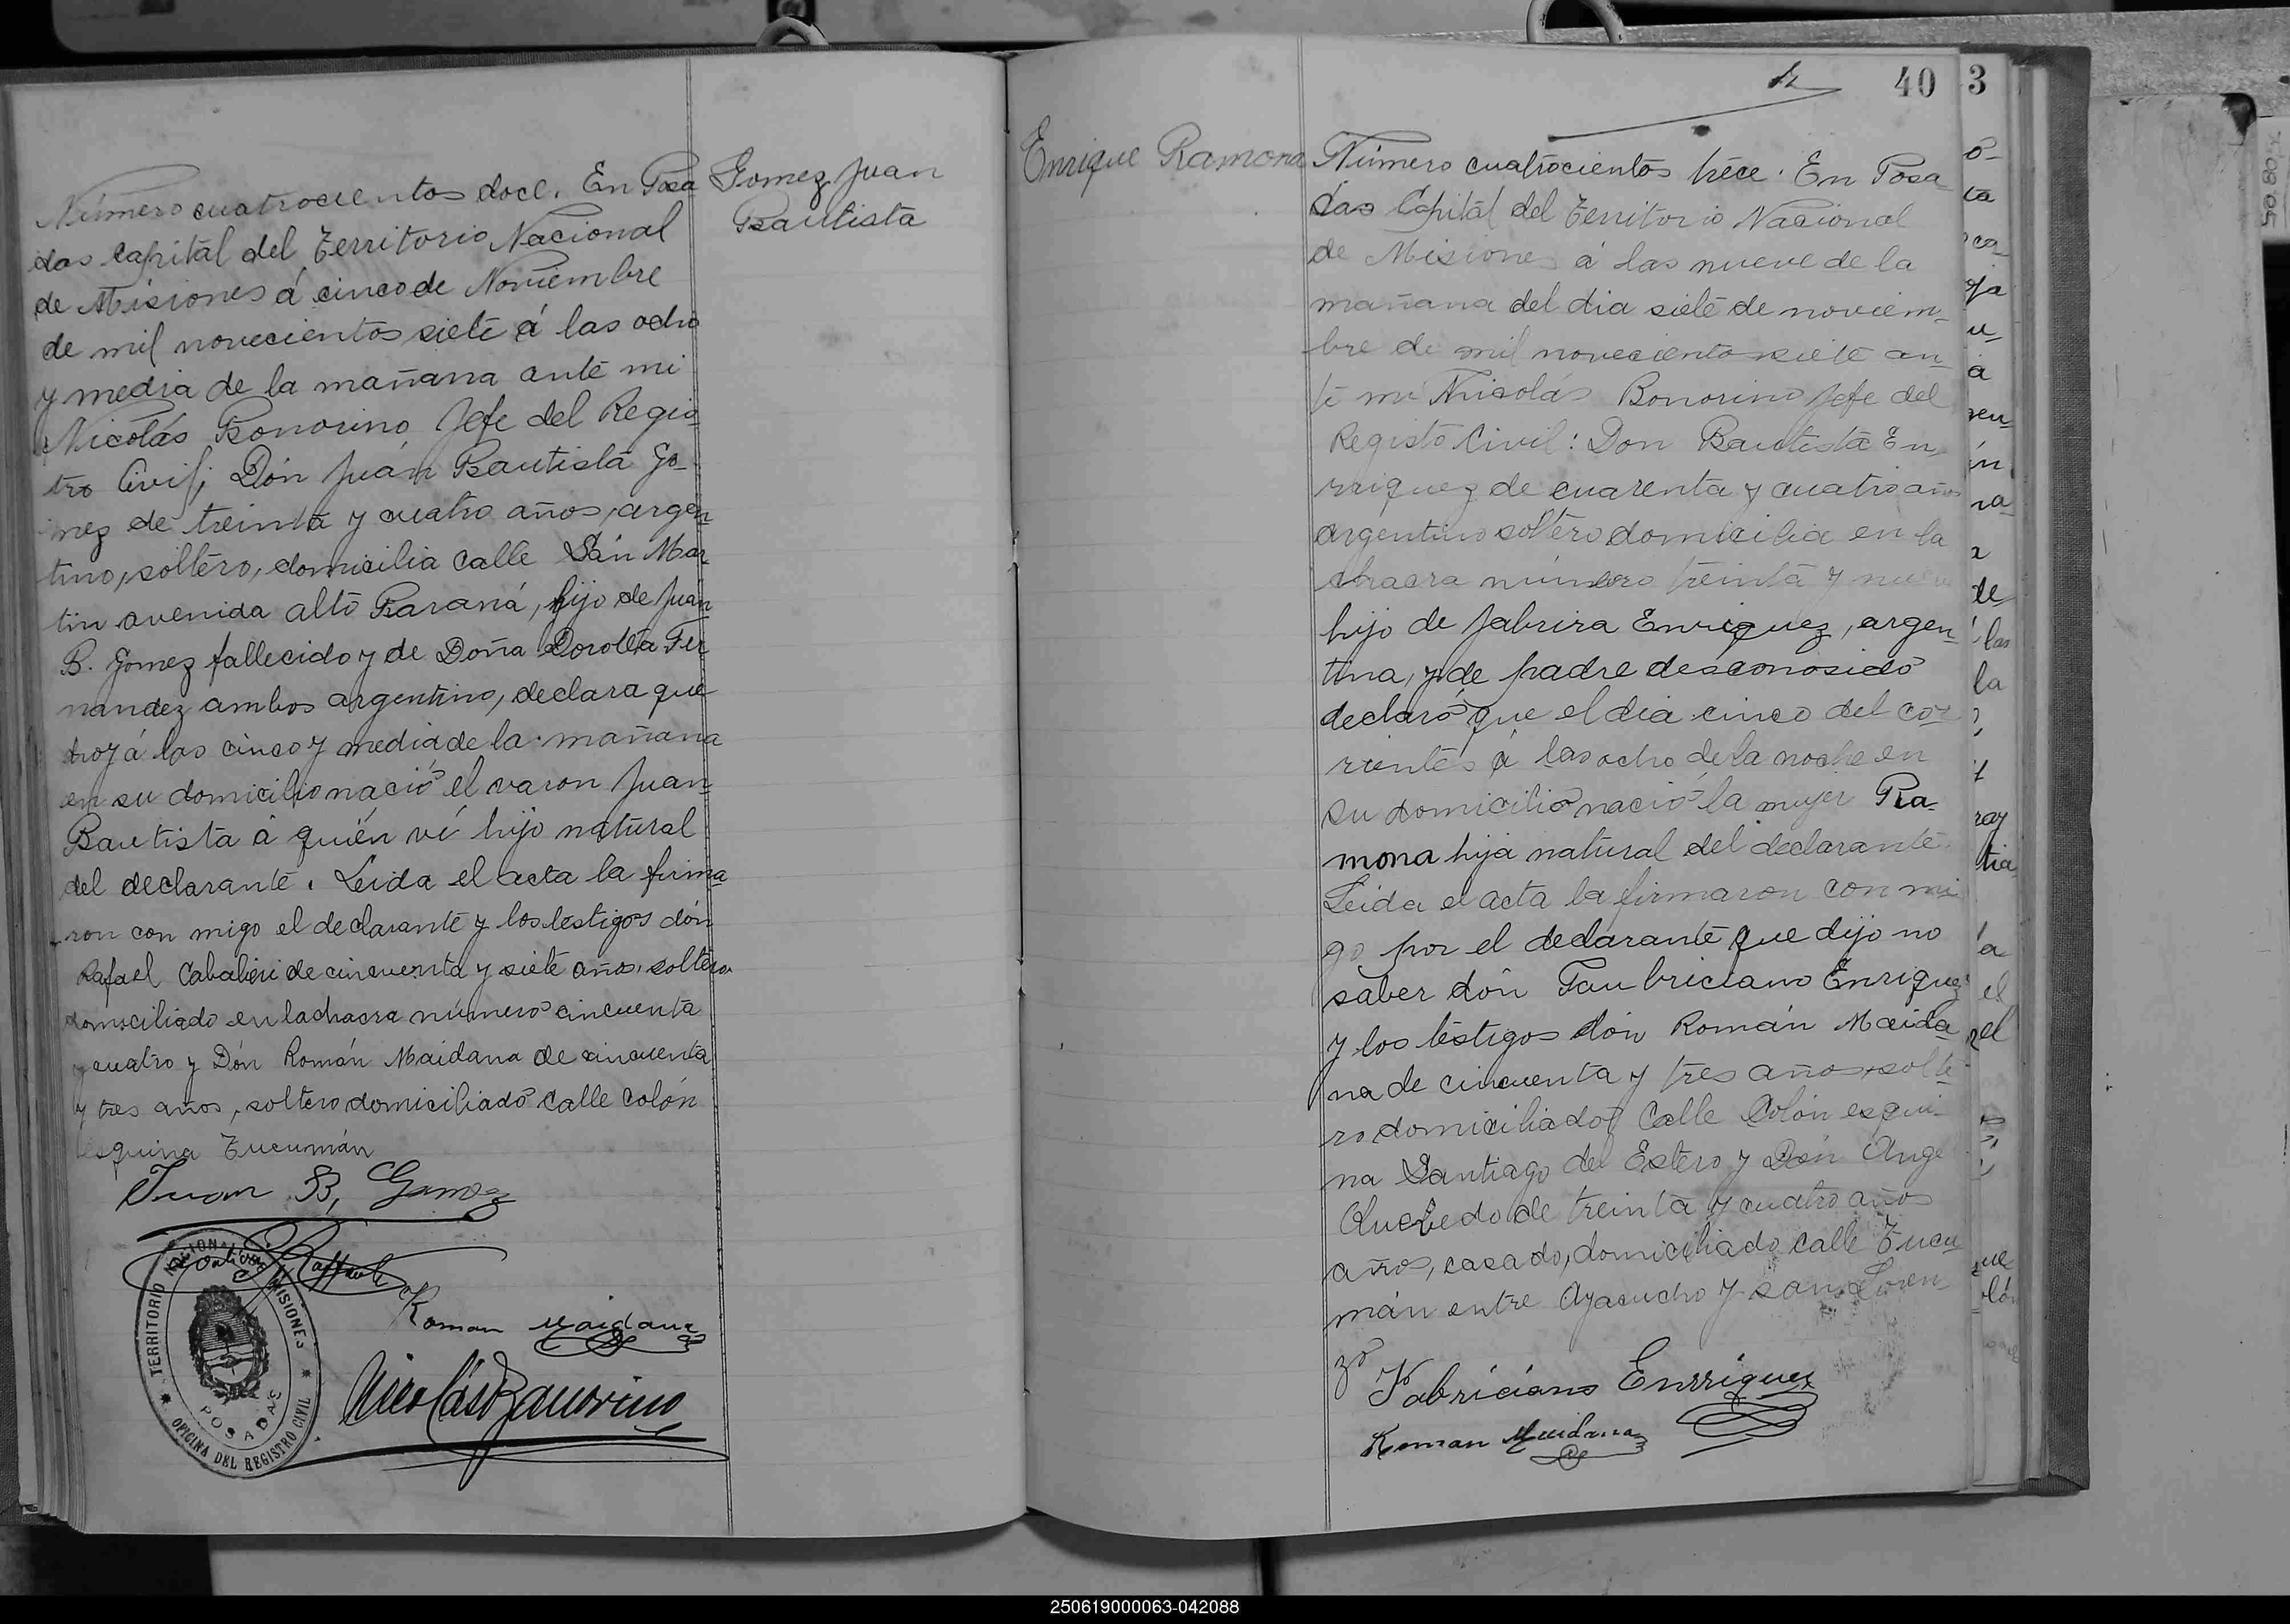 Número cuatrocientos doce. En Posa
das Capital del Territorio Nacional
de Misiones á cinco de Noviembre
de mil novecientos siete á las ocho
y media de la mañana ante mi
Nicolás Bonorino Jefe del Regis
tro Civil; Dón Juán Bautista Go
mez de treinta y cuatro años, argen
tino, soltero, domicilia calle Sán Mar
tin avenida alto Paraná, hijo de Juan
B. Gomez fallecido y de Doña Dorotea Fer
nandez ambos argentino, declara que
hoy á las cinco y media de la mañana
en su domicilio nació el varon Juan
Bautista á quién ví hijo natural
del declarante. Leida el acta la firma
ron con migo el declarante y los testigos dón
Rafael Cabalieri de cincuenta y siete años, soltero
domiciliado en la chacra número cincuenta
y cuatro y Dón Román Maidana de cincuenta
y tres años, soltero domiciliado calle colón
esquina Tucumán
Juan B, Gomez
Roman Maidana
Nicolás Bonorino
TERRITORIO NACIONAL MISIONES
POSADAS
OFICINA DEL REGISTRO CIVIL
Gomez Juan
Bautista
40
Enrique Ramona
Número cuatrocientos trece. En Posa
das Capital del Territorio Nacional
de Misiones á las nueve de la
mañana del dia siete de noviem-
bre de mil novecientos siete an
te mi Nicolás Bonorino Jefe del
Registo Civil: Don Bautista En
rriquez de cuarenta y cuatro años
argentino soltero domicilia en la
chacra número treinta y nueve
hijo de Jabrira Enriquez, argen
tina, y de padre desconosido
declaró que el dia cinco del cor
rientes á las ocho de la noche en
su domicilio nació la mujer Ra-
mona hija natural del declarante
Leida el acta la firmaron con mi
go por el declarante que dijo no
saber dón Faubriciano Enriquez
y los testigos dón Román Maida
na de cincuenta y tres años, solte
ro domiciliado Calle Colón esqui-
na Santiago del Estero y Dón Ange
Quevedo de treinta y cuatro años
años, casado, domiciliado calle Tucu
mán entre Ayacucho y san Loren
zo
Fabriciano Enrriquez
Roman Maidana
3
250619000063-042088